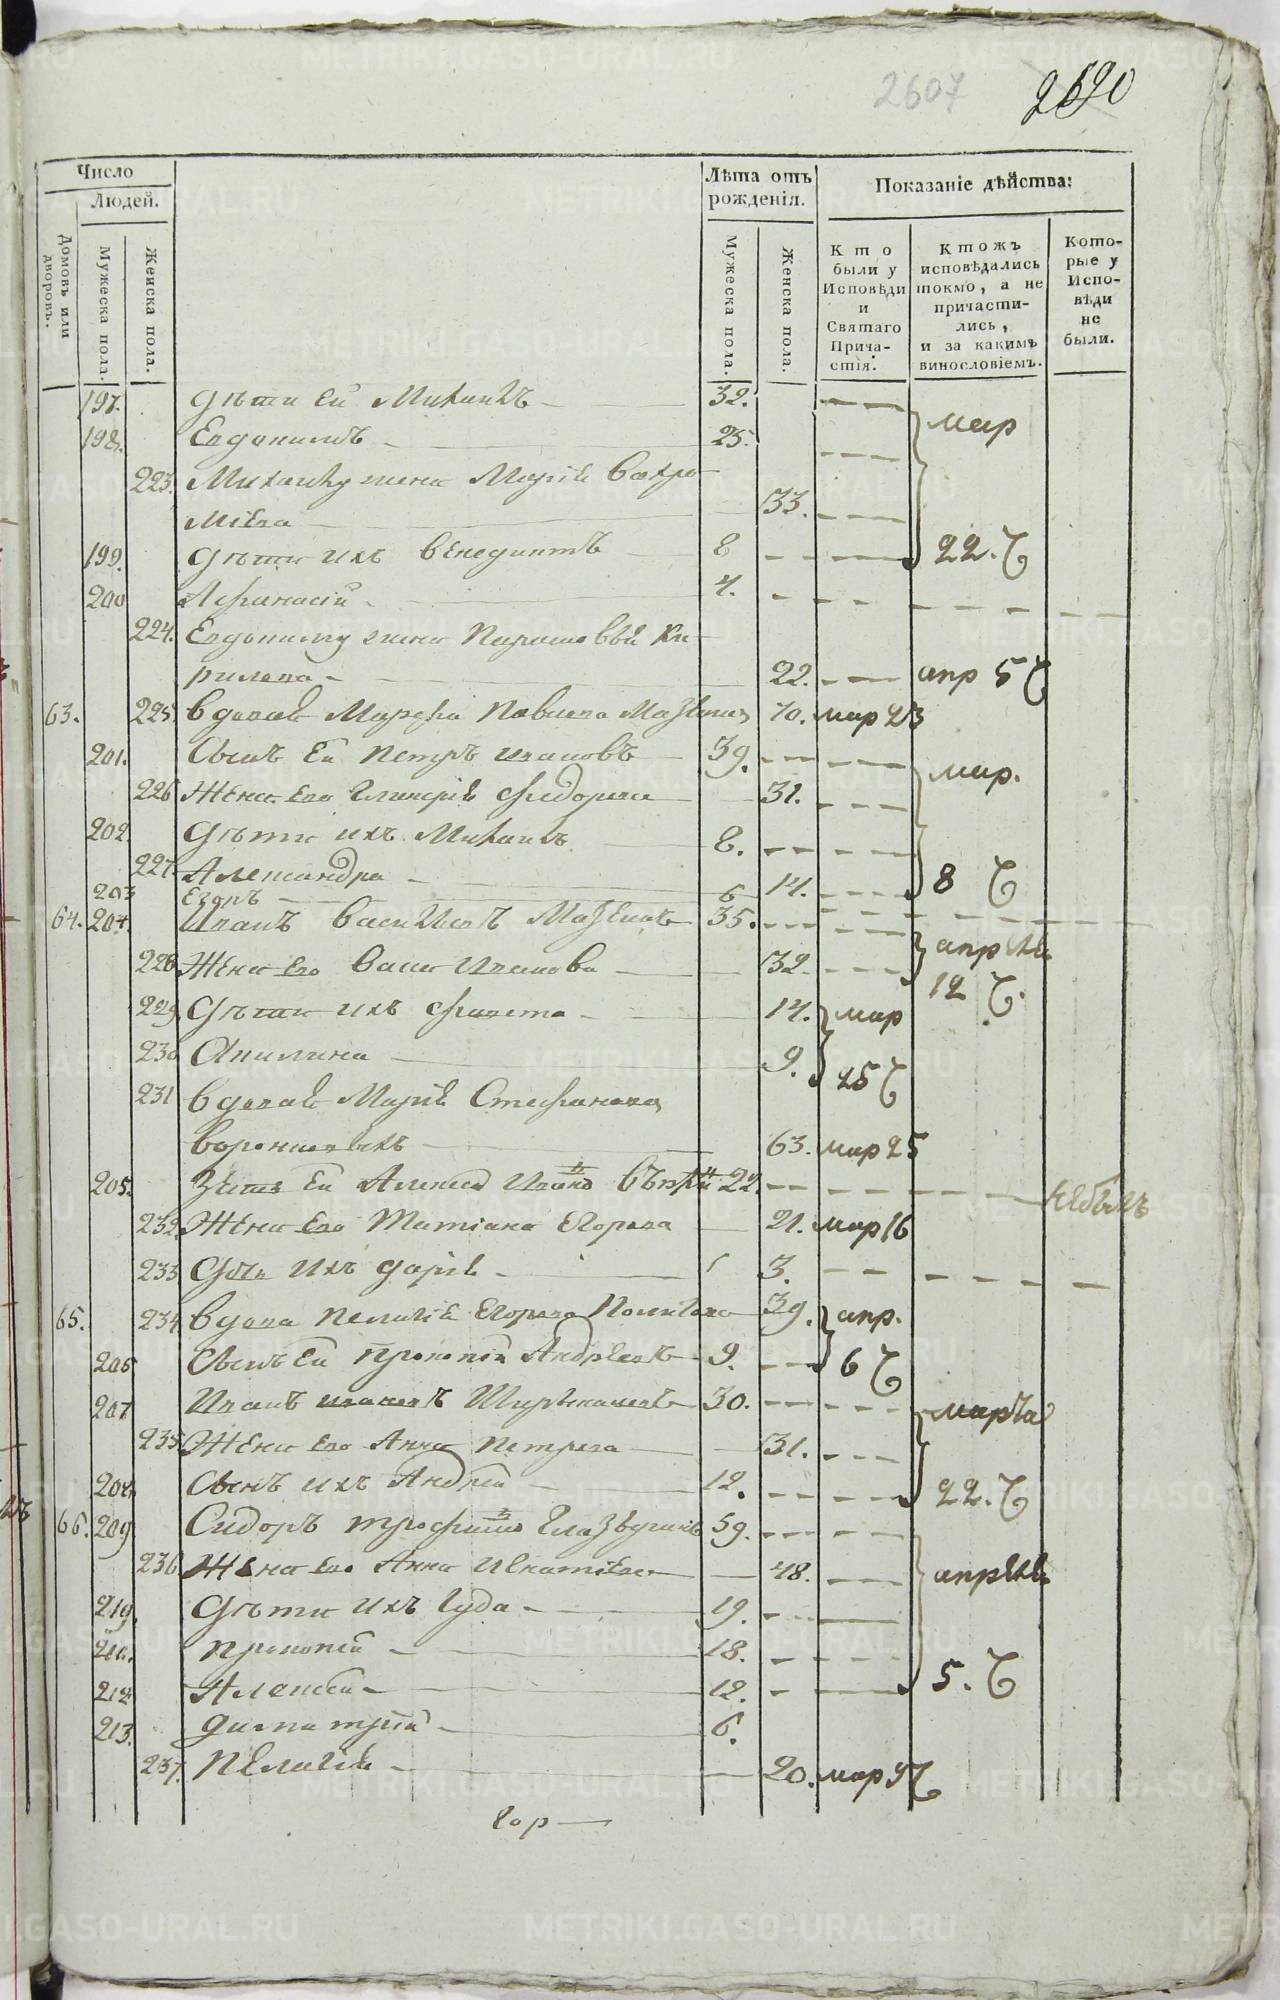 2607 2690
Число
Людей.
Домовъ или дворовъ.
Мужеска пола.
Женска пола.
Лѣта отъ рожденія.
Мужеска пола.
Женска пола.
Показаніе дѣйства:
Кто были у Исповѣди и Святаго Прича-стія.
Ктожъ исповѣдались токмо, а не причасти-лись, и за какимъ винословіемъ.
Кото-рые у Испо-вѣди не были.
197. Дѣти Ей Михаилъ 32. мар
198. Евдокимъ 25.
223. Михаилу жена Марія Вахро
міева 33.
199. Дѣти ихъ Венедиктъ 8 22.
200 Афанасій 4.
224. Евдокиму жена Парасковья Ки
рилова 22. апр 5
63. 225 Вдова Марфа Павлова 70. мар 23
201. Сынъ Ея Петръ Ивановъ 39. мар.
226 Жена Его Гликерія Федорова 31.
202. Дѣти ихъ Михаилъ 8.
227. Александра 14. 8
203 Егоръ 6
64. 204. Иванъ Васильевъ 35. апрѣля
228 Жена Его Васса Иванова 32. 12
229. Дѣти ихъ 14. мар
230 Акилина 9. 25
231 Вдова Марія Стефанова
63. мар 25
205. Зять Ея Алексей 22. небылъ
232. Жена Его Татіана Егорова 21. мар 16
233 Дочь ихъ Дарія 3.
65. 234 Вдова Пелагія Егорова 39. апр.
206 Сынъ Ей Прокопій Андреевъ 9. 6
207 Иванъ Ивановъ 30. марта
235. Жена Его Анна Петрова 31.
208. Сынъ ихъ Андрей 12. 22.
66. 209. Сидоръ Трофимо 59.
236 Жена Его Анна Игнатіева 48. апрѣля
210. Дѣти ихъ Іуда 19.
211. Прокопій 18.
212 Алексей 12. 5.
213. Димитрій 6.
237. Пелагія 20. мар
METRIKI.GASO-URAL.RU